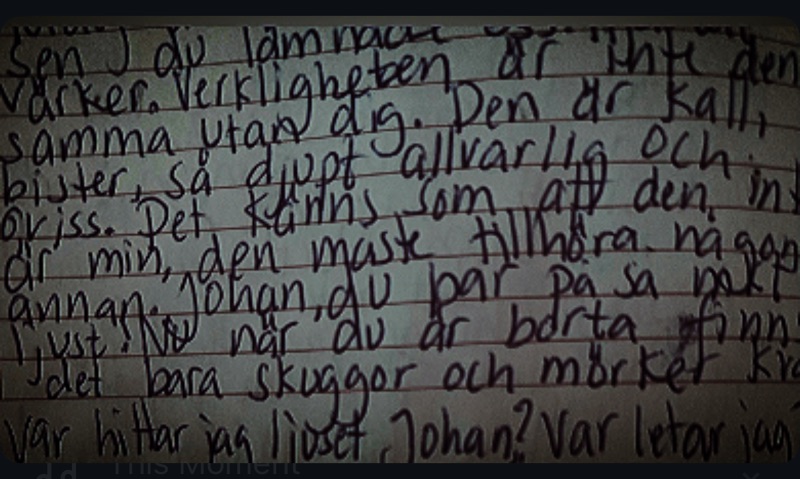 Sen du lämnade
värker. Verkligheten är inte den
samma utan dig. Den är kall,
bister, så djupt allvarlig och
öviss. Det känns som att den int
är min, den måste tillhöra någon
annan. Johan, du bar på så mkt
ljust! Nu när du är borta finn
det bara skuggor och mörket
var hittar jag ljuset, Johan? Var letar jag
This Moment